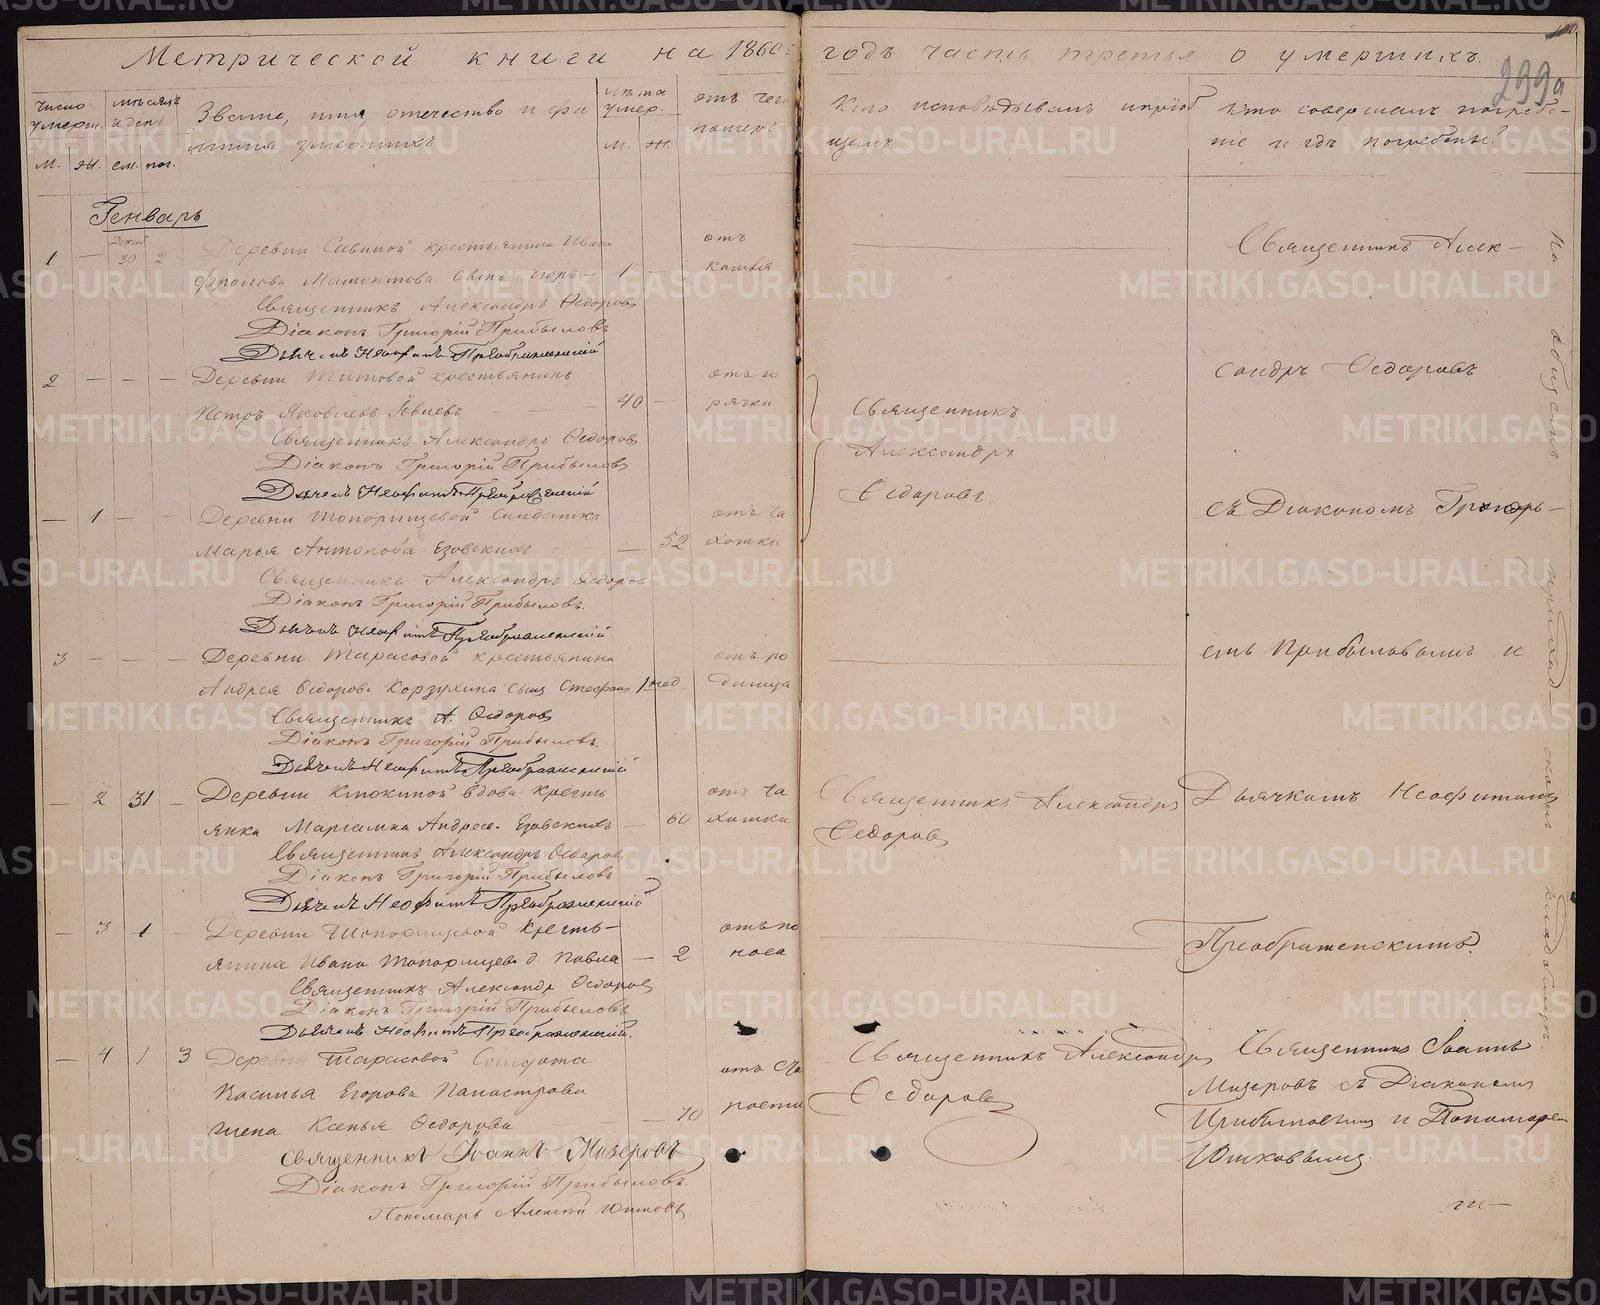 Метрической книги на 1860й годъ часть третья о умершихъ.
299а
Число умерш.
мѣсяцъ и день
Званіе, имя, отечество и фамилія умершихъ
лѣта умер.
отъ чего померъ
Кто исповѣдывалъ и пріобщалъ
Кто совершалъ погребеніе и гдѣ погребены?
М. Ж. см. пог. М. Ж.
Генварь
Декаб
1 — 30 2 Деревни Савиной крестьянина Ивана отъ
Фролова Мамонтова сынъ Егоръ — 1 — кашля
Священникъ Александръ Ѳедоровъ
Діаконъ Григорій Прибыловъ
Дьячекъ Неофитъ Преображенскій
2 — — — Деревни Титовой крестьянинъ отъ го
Петръ Яковлевъ — — — 40 — рячки
Священникъ Александръ Ѳедоровъ
Діаконъ Григорій Прибыловъ
Дьячекъ Неофитъ Преображенскій
— 1 — — Деревни Топорищевой Солдатка отъ ча
Марья Антонова Езовскихъ — — — 52 хотки
Священникъ Александръ Ѳедоровъ
Діаконъ Григорій Прибыловъ.
Дьячекъ Неофитъ Преображенскій
3 — — — Деревни Тарасовой крестьянина отъ ро
Андрея Ѳедорова Корзухина сынъ Стефанъ 1 нед. димца
Священникъ А. Ѳедоровъ
Діаконъ Григорій Прибыловъ.
Дьячекъ Неофитъ Преображенскій
— 2 31 — Деревни Клюкиной вдова кресть отъ ча
янка Маріамна Андреева Езовскихъ — 60 хотки
Священникъ Александръ Ѳедоровъ
Діаконъ Григорій Прибыловъ
Дьячекъ Неофитъ Преображенскій
— 3 1 — Деревни Топорищевой Кресть— отъ по
янина Ивана Топорищева д. Павла — 2 носа
Священникъ Александръ Ѳедоровъ
Діаконъ Григорій Прибыловъ
Дьячекъ Неофитъ Преображенскій.
— 4 1 3 Деревни Тарасовой Солдата отъ ста
Василья Егорова рости
жена Ксенья Ѳедорова — — — 70
Священникъ Іоаннъ Мизеровъ
Діаконъ Григорій Прибыловъ.
Пономарь Алексѣй Юшковъ.
Священникъ
Александръ
Ѳедоровъ.
Священникъ Александръ
Ѳедоровъ
Священникъ Александръ
Ѳедоровъ
Священникъ Алек—
сандръ Ѳедоровъ
съ Діакономъ Григорь—
емъ Прибыловымъ и
Дьячкомъ Неофитомъ
Преображенскимъ.
Священникъ Іоаннъ
Мизеровъ съ Діакономъ
Прибыловымъ и Пономаремъ
Юшковымъ.
На общемъ приходскомъ кладбищѣ.
METRIKI.GASO-URAL.RU